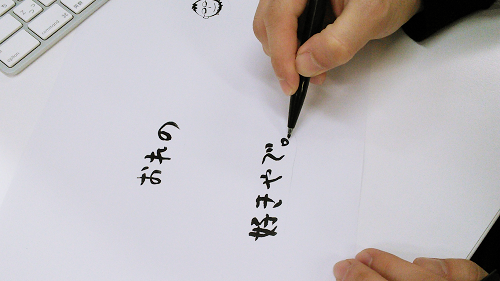 おれの
好きやで。